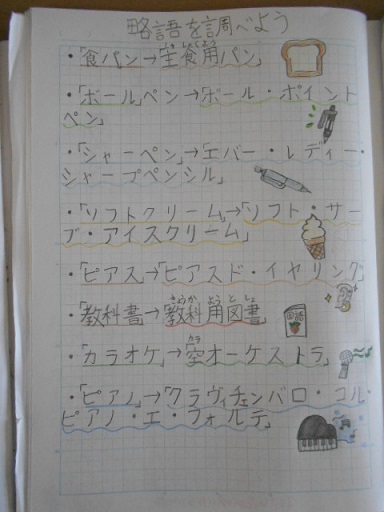 略語を調べよう
・「食パン」→「主食用パン」
・「ボールペン」→「ボール・ポイント
ペン」
・「シャーペン」→「エバー・レディー・
シャープペンシル」
・「ソフトクリーム」→「ソフト・サー
ブ・アイスクリーム」
・「ピアス」→「ピアスド・イヤリング」
・「教科書」→「教科用図書」
・「カラオケ」→「空オーケストラ」
・「ピアノ」→「クラヴィチェンバロ・コル・
ピアノ・エ・フォルテ」
国語